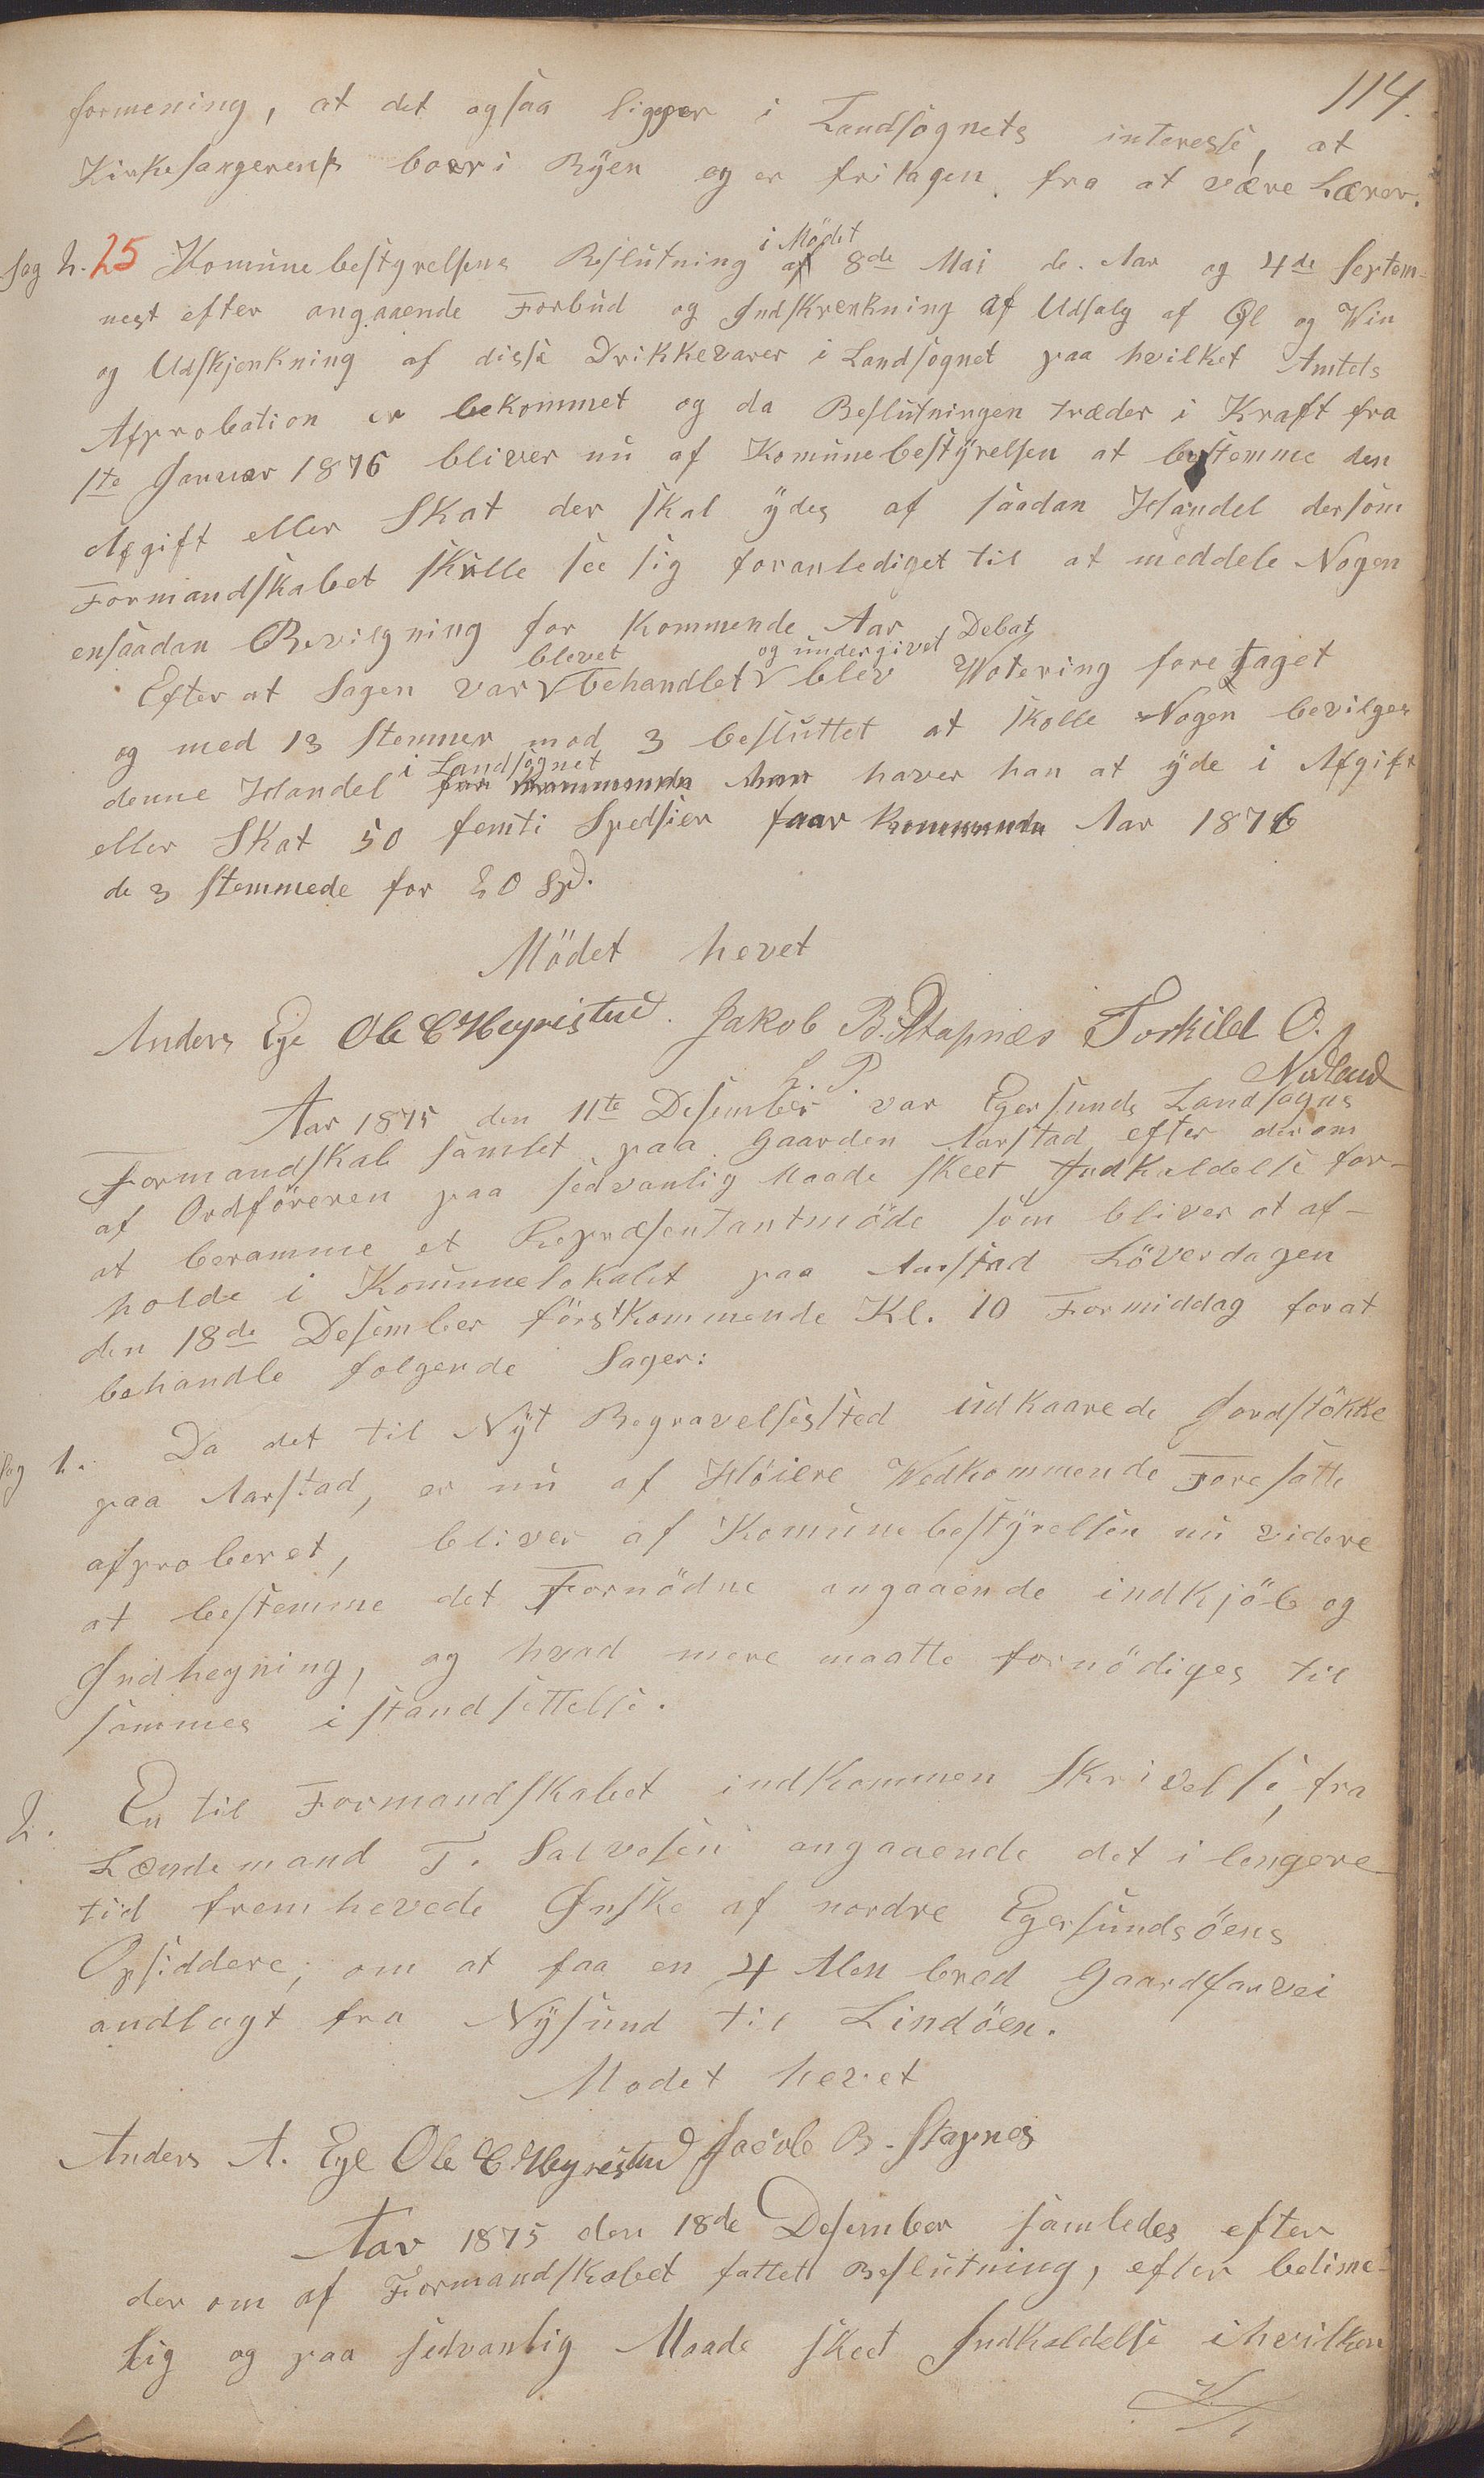 114.
formening, at det ogsaa ligger i Landsognets interesse, at
Kirkesangerens boer i Byen og er fritagen fra at være Lærer.
Sag 2. 25 Komunebestyrelsens Beslutning i Mödet af 8de Mai de. Aar og 4de Septem-
nest efter angaaende Forbud og Indskrenkning af Udsalg af Øl og Win
og Udskjenkning af disse Drikkevarer i Landsognet paa hvilket Amtets
Afprobation er bekommet og da Beslutningen træder i Kraft fra
1te Januar 1876 bliver nu af Komunebestyrelsen at bestemme den
Afgift eller Skat der skal ydes af saadan Handel dersom
Formandskabet skulle see sig foranlediget til at meddele Nogen
ensaadan Bevilgning for Kommende Aar
Efter at Sagen var blevet behandlet og undergivet Debat blev Wotering foretaget
og med 13 stemmer mod 3 besluttet at skolle Nogen bevilges
denne Handel i Landsognet for kommende Aar haver han at yde i Afgift
eller Skat 50 femti Spedsier faar kommende Aar 1876
de 3 stemmede for 20 Spd.
Mödet hevet
Anders Ege Ole C Hegrestad. Jakob B. Stapnes Torkild O.
L. P. Nerland
Aar 1875 den 11te Desember var Egersunds Landsogns
Formandskab samlet paa Gaarden Aarstad efter derom
af Ordföreren paa sedvanlig Maade skeet Indkaldelse for-
at beramme et Repræsentantmöde som bliver at af-
holde i Komunelokalet paa Aarstad Löverdagen
den 18de Desember förstkommende Kl. 10 Formiddag forat
behandle folgende Sager:
Sag 1. Da det til Nyt Begravelsessted udkaarede Jordstökke
paa Aarstad, er nu af Höiere Wedkommende Foresatte
afproberet, bliver af Komunebestyrelsen nu videre
at bestemme det Fornödne angaaende indkjöb og
Indhegning, og hvad mere maatte fornödiges til
sammes istandsettelse.
2. En til Formandskabet indkommen Skrivelse, fra
Lændemand T. Salvesen angaaende det i lengere
tid fremhevede Ønske af nordre Egersundsöens
Opsiddere, om at faa en 4 Alen bred Gaardsanvei
andlagt fra Nysund til Lindöen.
Modet hevet
Anders A. Ege Ole C Hegrestad Jacob B. Stapnes
Aar 1875 den 18de Desember samledes efter
der om af Formandskabet fattet Beslutning, efter betime-
lig og paa sedvanlig Maade skeet Indkaldelse ihvilken